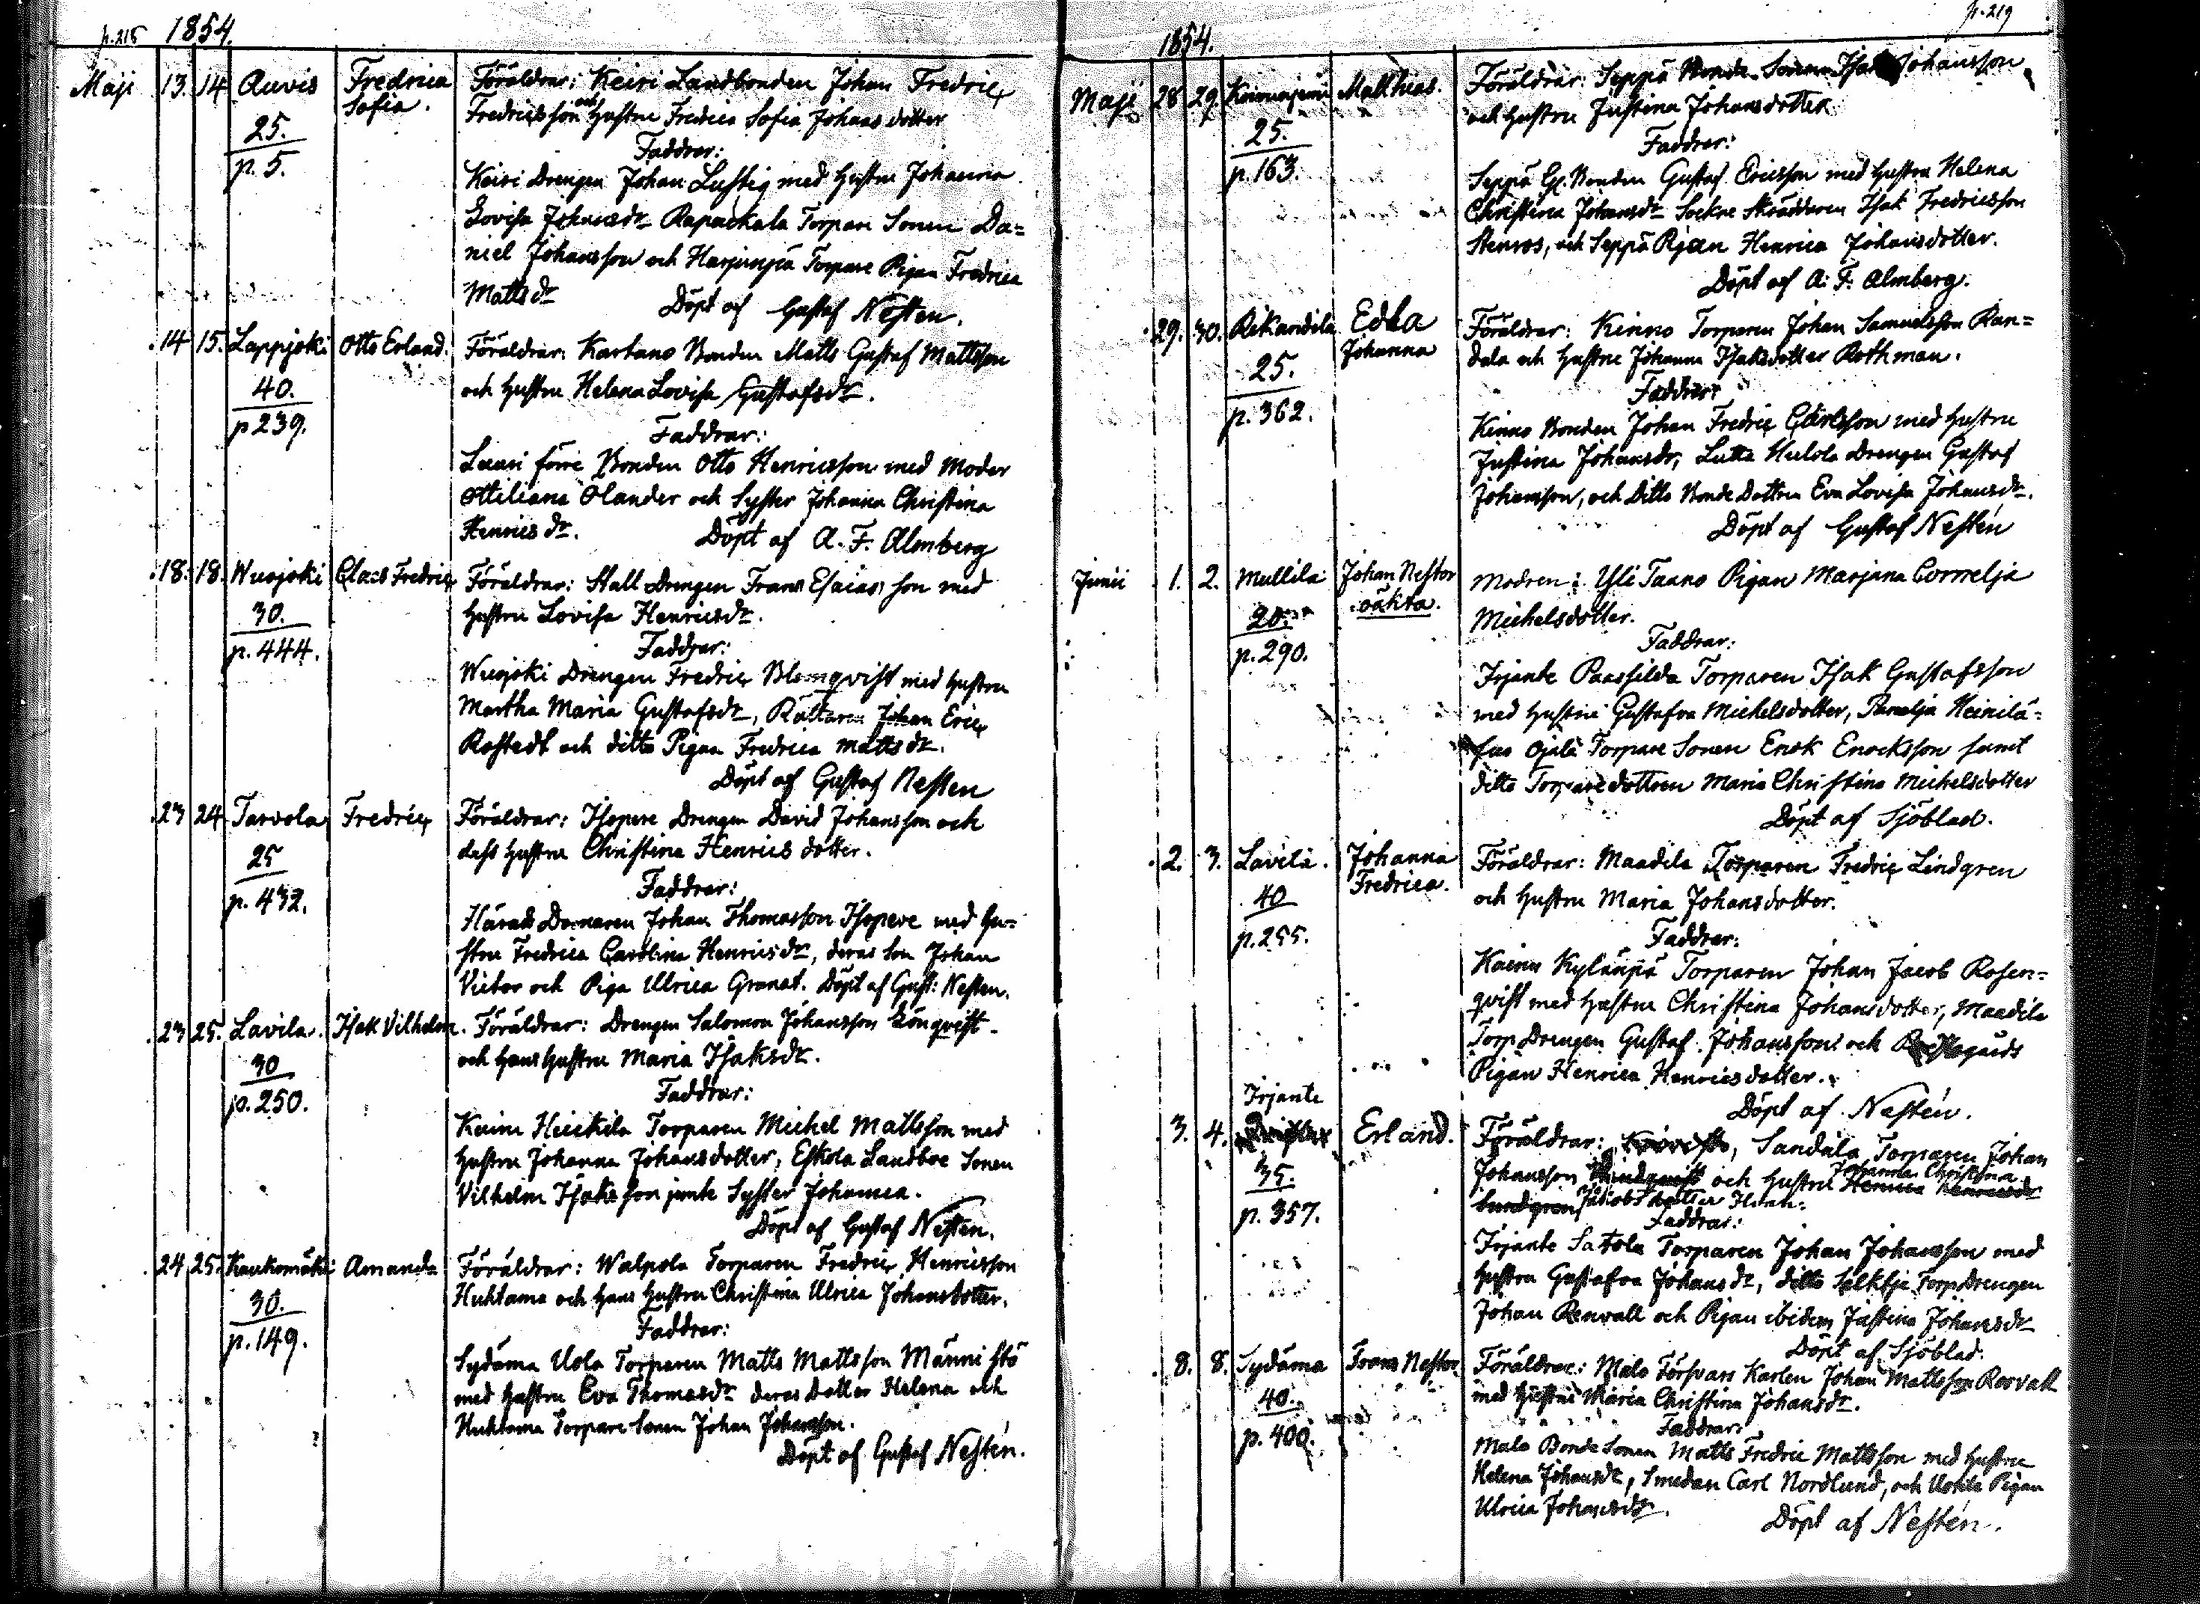 p.218 1854.
Maji 13. 14 Auvis Fredrica Sofia.
25.
p. 5.
Föräldrar: Keiri Landbonden Johan Fredric
Fredricsson och Hustru Fredrica Sofia Johansdotter
Faddrar:
Keiri Drengen Johan Lustig med Hustru Johanna
Lovisa Johansdr Rapackala Torpare Sonen Da=
niel Johansson och Harjunpä Torpare Pigan Fredrica
Mattsdr Döpt af Gustaf Nestén.
14 15. Lappjoki Otto Erland.
40.
p 239.
Föräldrar: Kartano Bonden Matts Gustaf Mattsson
och Hustru Helena Lovisa Gustafsdr.
Faddrar:
Lauri förre Bonden Otto Henricsson med Moder
Ottiliana Olander och Syster Johanna Christina
Henricsdr. Döpt af A. F. Almberg
18. 18. Wuojoki Claes Fredric
30.
p. 444.
Föräldrar: Stall Drengen Frans Esaias son med
Hustru Lovisa Henricsdr.
Faddrar:
Wuojoki Drengen Fredric Blomqvist med Hustru
Martha Maria Gustafsdr, Rättaren Johan Eric
Rostedt och ditto Pigan Fredrica Mattsdr.
Döpt af Gustaf Nestén
23 24 Tarvola Fredric
25
p. 432.
Föräldrar: Isopere Drengen David Johansson och
dess Hustru Christina Henricsdotter.
Faddrar:
Härads Domaren Johan Thomasson Isopere med Hu=
stru Fredrica Carolina Henricsdr, deras Son Johan
Victor och Piga Ulrica Granat. Döpt af Gust: Nestén.
23 25. Lavila. Isak Vilhelm.
30
p. 250.
Föräldrar: Drengen Salomon Johansson Lönqvist
och hans Hustru Maria Isaksdr.
Faddrar:
Kaini Heickilä Torparen Michel Mattsson med
Hustru Johanna Johansdotter, Eskola Landboe Sonen
Vilhelm Isaksson jemte Syster Johanna.
Döpt af Gustaf Nestén.
24 25. Kaukomäki Amanda
30.
p. 149.
Föräldrar: Walpola Torparen Fredric Henricsson
Huhtama och hans Hustru Christina Ulrica Johansdotter.
Faddrar:
Sydäma Uola Torparen Matts Mattsson Männistö
med Hustru Eva Thomasdr deras Dotter Helena och
Huhtama Torpare Sonen Johan Johansson.
Döpt af Gustaf Nestén.
p. 219
1854.
Maji 28 29. Matthias.
25.
p. 163.
Föräldrar: Seppä Bonde Sonen Isak Johansson
och Hustru Justina Johansdotter
Faddrar:
Seppä Gl. Bonden Gustaf Ericsson med Hustru Helena
Christina Johansdr Sockne Skräddaren Isak Fredricsson
Stenros, och Seppä Pigan Henrica Johansdotter.
Döpt af A. F. Almberg.
29. 30. Rikandila Edla Johanna
25.
p. 362.
Föräldrar: Kinno Torparen Johan Samuelsson Ran=
dala och Hustru Johanna Isaksdotter Rothman.
Faddrar:
Kinno Bonden Johan Fredric Carlsson med Hustru
Justina Johansdr, Lutta Hulola Drengen Gustaf
Johansson, och Ditto Bonde Dottren Eva Lovisa Johansdr.
Döpt af Gustaf Nestén
Junii 1. 2. Mullila Johan Nestor oäkta.
20.
p. 290.
Modren: Yli Taano Pigan Marjana Cornelja
Michelsdotter.
Faddrar:
Irjante Paassilda Torparen Isak Gustafsson
med Hustru Gustafva Michelsdotter, Panelja Heinilä=
Ojala Torpare Sonen Enok Enocksson samt
ditto Torparedottren Maria Christina Michelsdotter
Döpt af Sjöblad.
2. 3. Lavila. Johanna Fredrica.
40
p. 255.
Föräldrar: Maadila Torparen Fredric Lindgren
och Hustru Maria Johansdotter.
Faddrar:
Kainu Kylänpä Torparen Johan Jacob Rosen=
qvist med Hustru Christina Johansdotter, Maadila
Torp Drengen Gustaf Johansson och
Pigan Henrica Henricsdotter.
Döpt af Nestén.
3. 4. Irjante Erland.
35.
p. 357.
Föräldrar: Sandala Torparen Johan
Johansson och Hustru Johanna Christina
Lundgren Jacobsdotter
Faddrar:
Irjante Satola Torparen Johan Johansson med
Hustru Gustafva Johansdr, ditto Torp Drengen
Johan Renvall och Pigan ibidem Justina Johansdr
Döpt af Sjöblad.
8. 8. Sydäma Frans Nestor
40.
p. 400.
Föräldrar: Malo Försvars Karlen Johan Mattsson Rosvall
med Hustru Maria Christina Johansdr.
Faddrar:
Malo Bonde Sonen Matts Fredric Mattsson med Hustru
Helena Johansdr, Smeden Carl Nordlund, och Uotila Pigan
Ulrica Johansdr.
Döpt af Nestén.